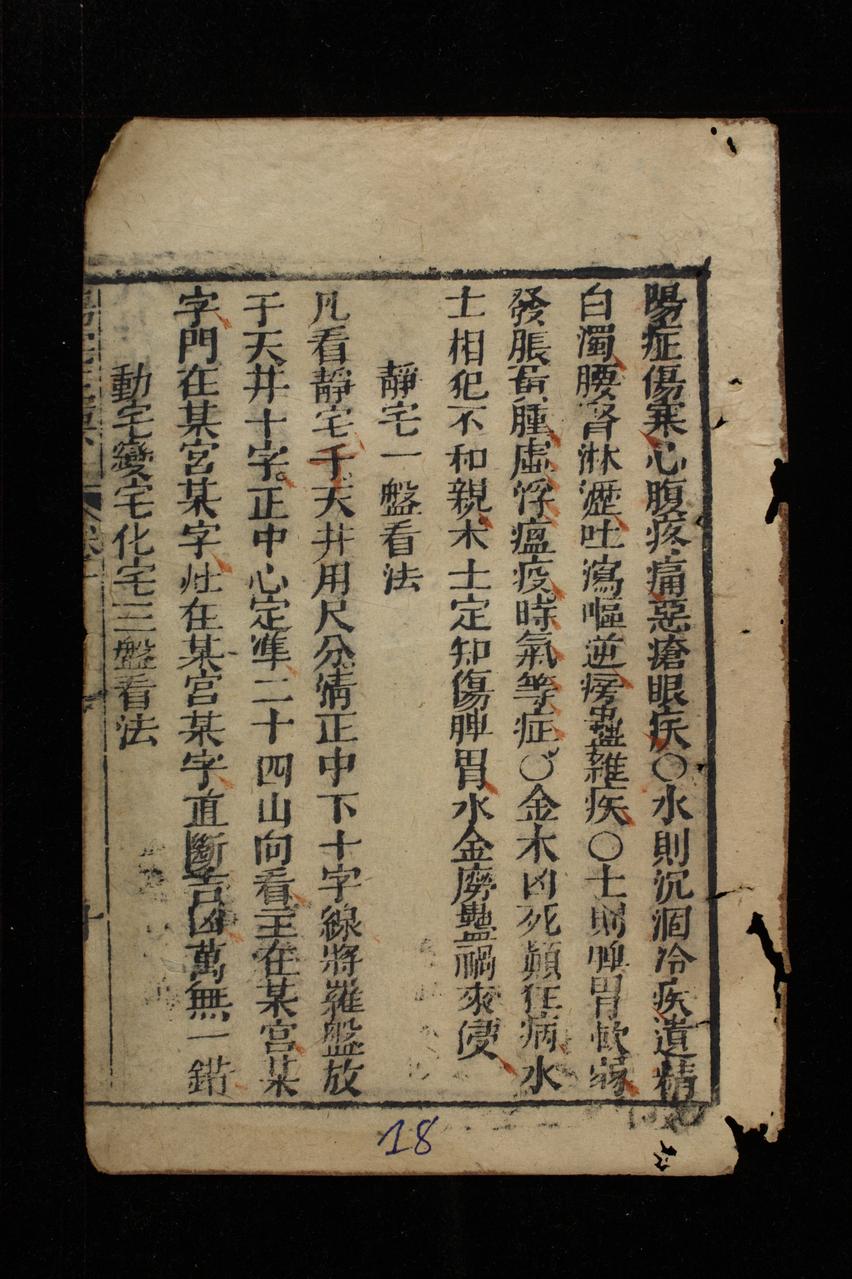 陽症傷寒心腹疼痛惡瘡眼疾〇水則沉涸冷疾遺精
白濁腰腎淋瀝吐瀉嘔逆癆蠱雜疾〇土則脾胃軟弱
發脹黃腫虛浮瘟疫時氣等症〇金木凶死顛狂病水
土相犯不和親木土定知傷脾胃水金癆蠱禍來侵
靜宅一盤看法
凡看靜宅于天井用尺分清正中下十字線將羅盤放
于天井十字正中心定準二十四山向看主在某宮某
字門在某宮某字灶在某宮某字直斷吉凶萬無一錯
動宅變宅化宅三盤看法
陽宅三要
18